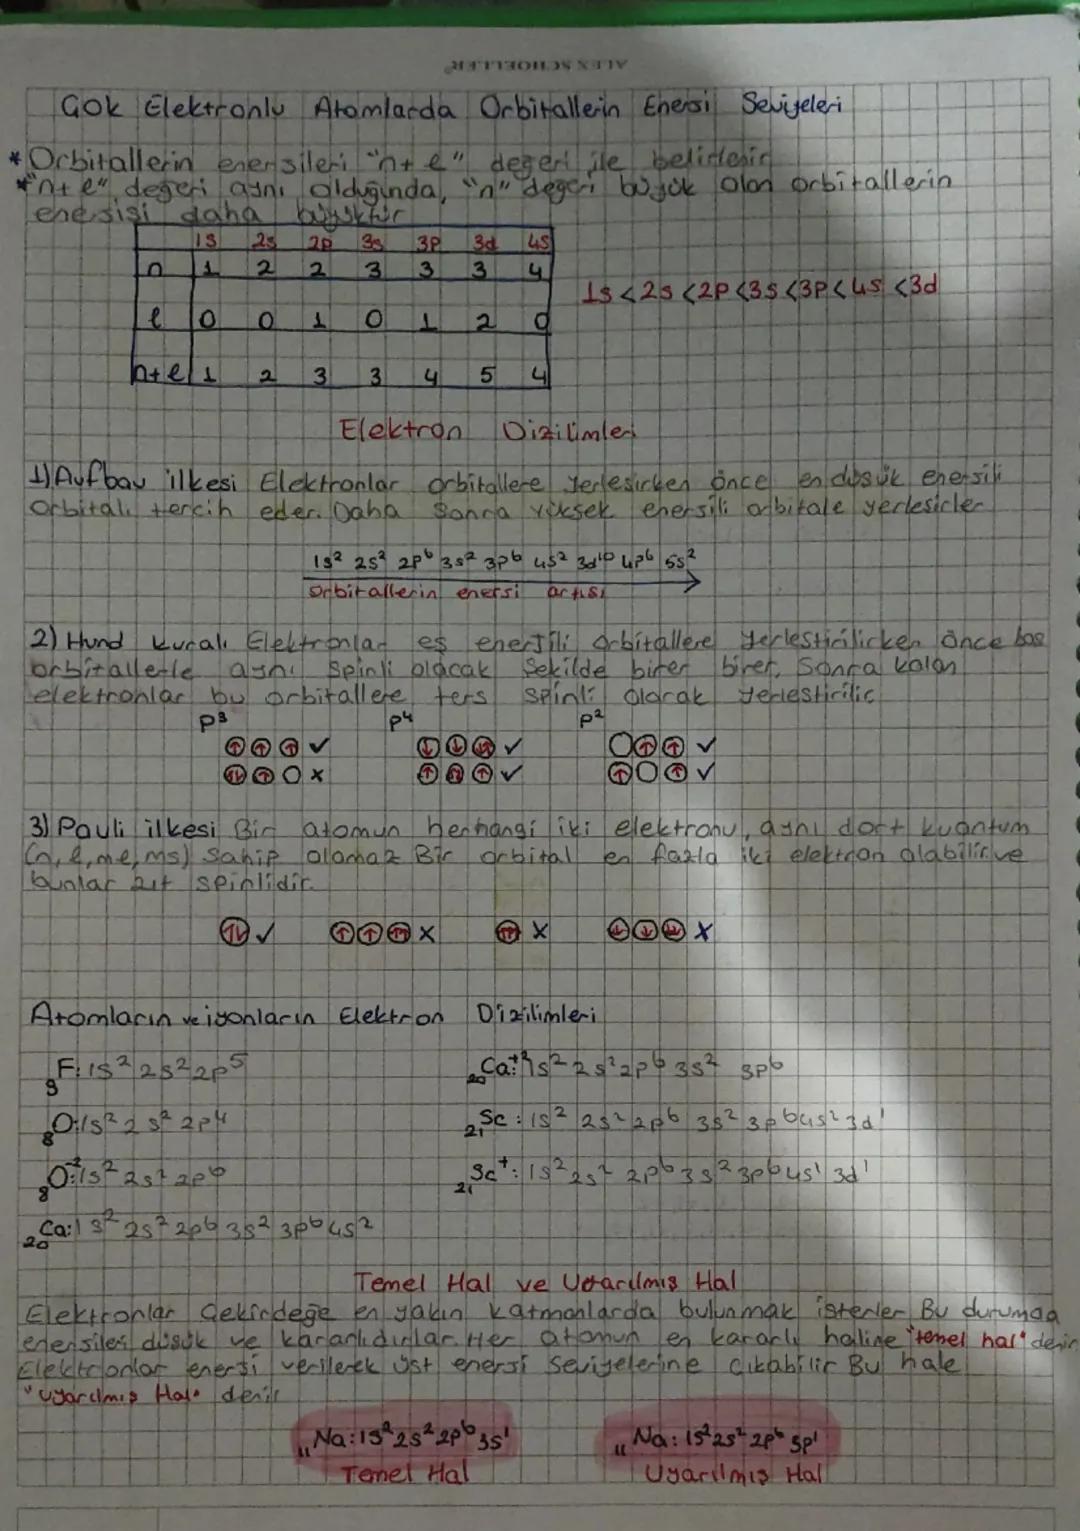 ALEX SCHOELLER®
Çok Elektronlu Atomlarda Orbitallerin Enerji Seviyeleri
*Orbitallerin enerjileri "n+l" değeri ile belirlenir
*"n+l" değeri aynı olduğunda, "n" değeri büyük olan orbitallerin
enerjisi daha büyüktür
1s 2s 2p 3s 3p 3d 4s
n 1 2 2 3 3 3 4
l 0 0 1 0 1 2 0
n+l 1 2 3 3 4 5 4
1s<2s<2p<3s<3p<4s<3d
Elektron Dizilimleri
1) Aufbau ilkesi Elektronlar orbitallere yerleşirken önce en düşük enerjili
orbitali tercih eder. Daha sonra yüksek enerjili orbitale yerleşirler
1s² 2s² 2p⁶ 3s² 3p⁶ 4s² 3d¹⁰ 4p⁶ 5s²
orbitallerin enerji artışı
2) Hund kuralı Elektronlar eş enerjili orbitallere yerleştirilirken önce boş
orbitallerle aynı spinli olacak şekilde birer birer, sonra kalan
elektronlar bu orbitallere ters spinli olarak yerleştirilir
p³ p⁴ p²
↑ ↑ ↑ ✓ ↓ ↓ ↓↑ ✓ ↑ ↑ ✓
↑↓ ↑ x ↑ ↑↓ ↑ ✓ ↑ ↑ ✓
3) Pauli ilkesi Bir atomun herhangi iki elektronu, aynı dört kuantum
(n, l, ml, ms) sahip olamaz Bir orbital en fazla iki elektron alabilir ve
bunlar zıt spinlidir
↑↓ ✓ ↑ ↑ ↑↑ x ↑↑ x ↓ ↓ ↓↓ x
Atomların ve iyonların Elektron Dizilimleri
₉F: 1s² 2s² 2p⁵ ₂₀Ca⁺²: 1s² 2s² 2p⁶ 3s² 3p⁶
₈O: 1s² 2s² 2p⁴ ₂₁Sc: 1s² 2s² 2p⁶ 3s² 3p⁶ 4s² 3d¹
₈O⁻²: 1s² 2s² 2p⁶ ₂₁Sc⁺: 1s² 2s² 2p⁶ 3s² 3p⁶ 4s¹ 3d¹
₂₀Ca: 1s² 2s² 2p⁶ 3s² 3p⁶ 4s²
Temel Hal ve Uyarılmış Hal
Elektronlar Çekirdeğe en yakın katmanlarda bulunmak isterler Bu durumda
enerjileri düşük ve kararlıdırlar. Her atomun en kararlı haline "temel hal" denir
Elektronlar enerji verilerek üst enerji seviyelerine çıkabilir Bu hale
"Uyarılmış Hal" denir
₁₁Na: 1s² 2s² 2p⁶ 3s¹ ₁₁Na: 1s² 2s² 2p⁶ 3p¹
Temel Hal Uyarılmış Hal